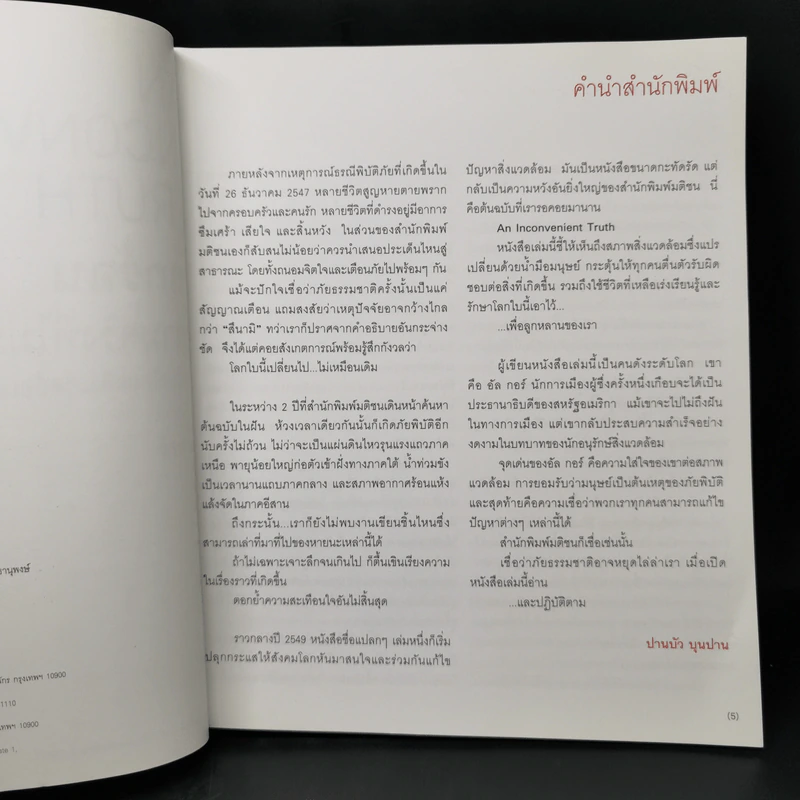 คำนำสำนักพิมพ์
ภายหลังจากเหตุการณ์ธรณีพิบัติภัยที่เกิดขึ้นใน
วันที่ 26 ธันวาคม 2547 หลายชีวิตสูญหายตายพราก
ไปจากครอบครัวและคนรัก หลายชีวิตที่ดำรงอยู่มีอาการ
ซึมเศร้า เสียใจ และสิ้นหวัง ในส่วนของสำนักพิมพ์
มติชนเองก็สับสนไม่น้อยว่าควรนำเสนอประเด็นไหนสู่
สาธารณะ โดยทั้งถนอมจิตใจและเตือนภัยไปพร้อมๆ กัน
แม้จะปักใจเชื่อว่าภัยธรรมชาติครั้งนั้นเป็นแค่
สัญญาณเตือน แถมสงสัยว่าเหตุปัจจัยอาจกว้างไกล
กว่า “สึนามิ” ทว่าเราก็ปราศจากคำอธิบายอันกระจ่าง
ชัด จึงได้แต่คอยสังเกตการณ์พร้อมรู้สึกกังวลว่า
โลกใบนี้เปลี่ยนไป...ไม่เหมือนเดิม
ในระหว่าง 2 ปีที่สำนักพิมพ์มติชนเดินหน้าค้นหา
ต้นฉบับในฝัน ห้วงเวลาเดียวกันนั้นก็เกิดภัยพิบัติอีก
นับครั้งไม่ถ้วน ไม่ว่าจะเป็นแผ่นดินไหวรุนแรงแถวภาค
เหนือ พายุน้อยใหญ่ก่อตัวเข้าฝั่งทางภาคใต้ น้ำท่วมขัง
เป็นเวลานานแถบภาคกลาง และสภาพอากาศร้อนแห้ง
แล้งจัดในภาคอีสาน
ถึงกระนั้น...เราก็ยังไม่พบงานเขียนชิ้นไหนซึ่ง
สามารถเล่าที่มาที่ไปของหายนะเหล่านี้ได้
ถ้าไม่เฉพาะเจาะลึกจนเกินไป ก็ตื้นเขินเรียงความ
ในเรื่องราวที่เกิดขึ้น
ตอกย้ำความสะเทือนใจอันไม่สิ้นสุด
ราวกลางปี 2549 หนังสือชื่อแปลกๆ เล่มหนึ่งก็เริ่ม
ปลุกกระแสให้สังคมโลกหันมาสนใจและร่วมกันแก้ไข
ปัญหาสิ่งแวดล้อม มันเป็นหนังสือขนาดกะทัดรัด แต่
กลับเป็นความหวังอันยิ่งใหญ่ของสำนักพิมพ์มติชน นี่
คือต้นฉบับที่เรารอคอยมานาน
An Inconvenient Truth
หนังสือเล่มนี้ชี้ให้เห็นถึงสภาพสิ่งแวดล้อมซึ่งแปร
เปลี่ยนด้วยน้ำมือมนุษย์ กระตุ้นให้ทุกคนตื่นตัวรับผิด
ชอบต่อสิ่งที่เกิดขึ้น รวมถึงใช้ชีวิตที่เหลือเร่งเรียนรู้และ
รักษาโลกใบนี้เอาไว้...
...เพื่อลูกหลานของเรา
ผู้เขียนหนังสือเล่มนี้เป็นคนดังระดับโลก เขา
คือ อัล กอร์ นักการเมืองผู้ซึ่งครั้งหนึ่งเกือบจะได้เป็น
ประธานาธิบดีของสหรัฐอเมริกา แม้เขาจะไปไม่ถึงฝัน
ในทางการเมือง แต่เขากลับประสบความสำเร็จอย่าง
งดงามในบทบาทของนักอนุรักษ์สิ่งแวดล้อม
จุดเด่นของอัล กอร์ คือความใส่ใจของเขาต่อสภาพ
แวดล้อม การยอมรับว่ามนุษย์เป็นต้นเหตุของภัยพิบัติ
และสุดท้ายคือความเชื่อว่าพวกเราทุกคนสามารถแก้ไข
ปัญหาต่างๆ เหล่านี้ได้
สำนักพิมพ์มติชนก็เชื่อเช่นนั้น
เชื่อว่าภัยธรรมชาติอาจหยุดไล่ล่าเรา เมื่อเปิด
หนังสือเล่มนี้อ่าน
...และปฏิบัติตาม
ปานบัว บุนปาน
(5)
อานุพงษ์
กรุงเทพฯ 10900
1110
10900